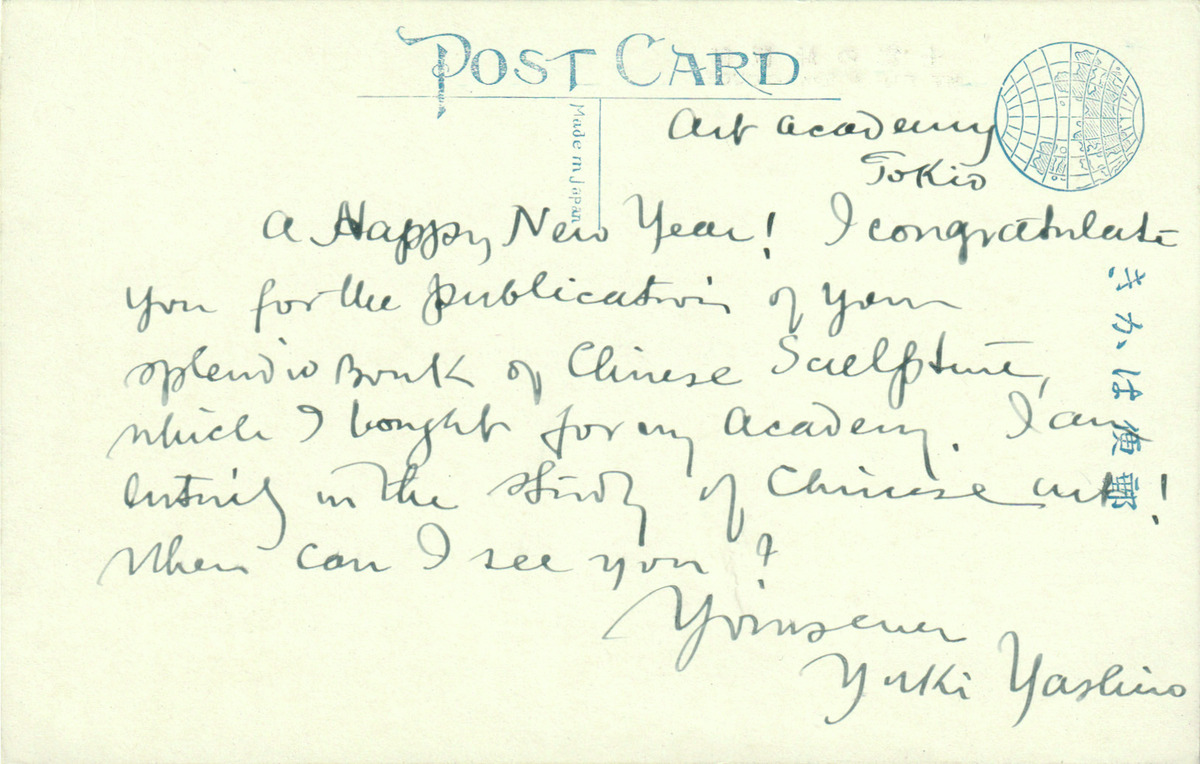 POST CARD
Made in Japan
Art Academy
Tokio
A Happy New Year! I congratulate
you for the publication of your
splendid Book of Chinese Sculpture,
which I bought for my Academy. I am
entirely in the study of Chinese art!
When can I see you?
Yours ever
Yuki Yashiro
郵便はかき